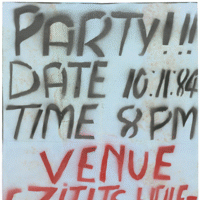 PARTY!!!
DATE 10.11.84
TIME 8PM
VENUE